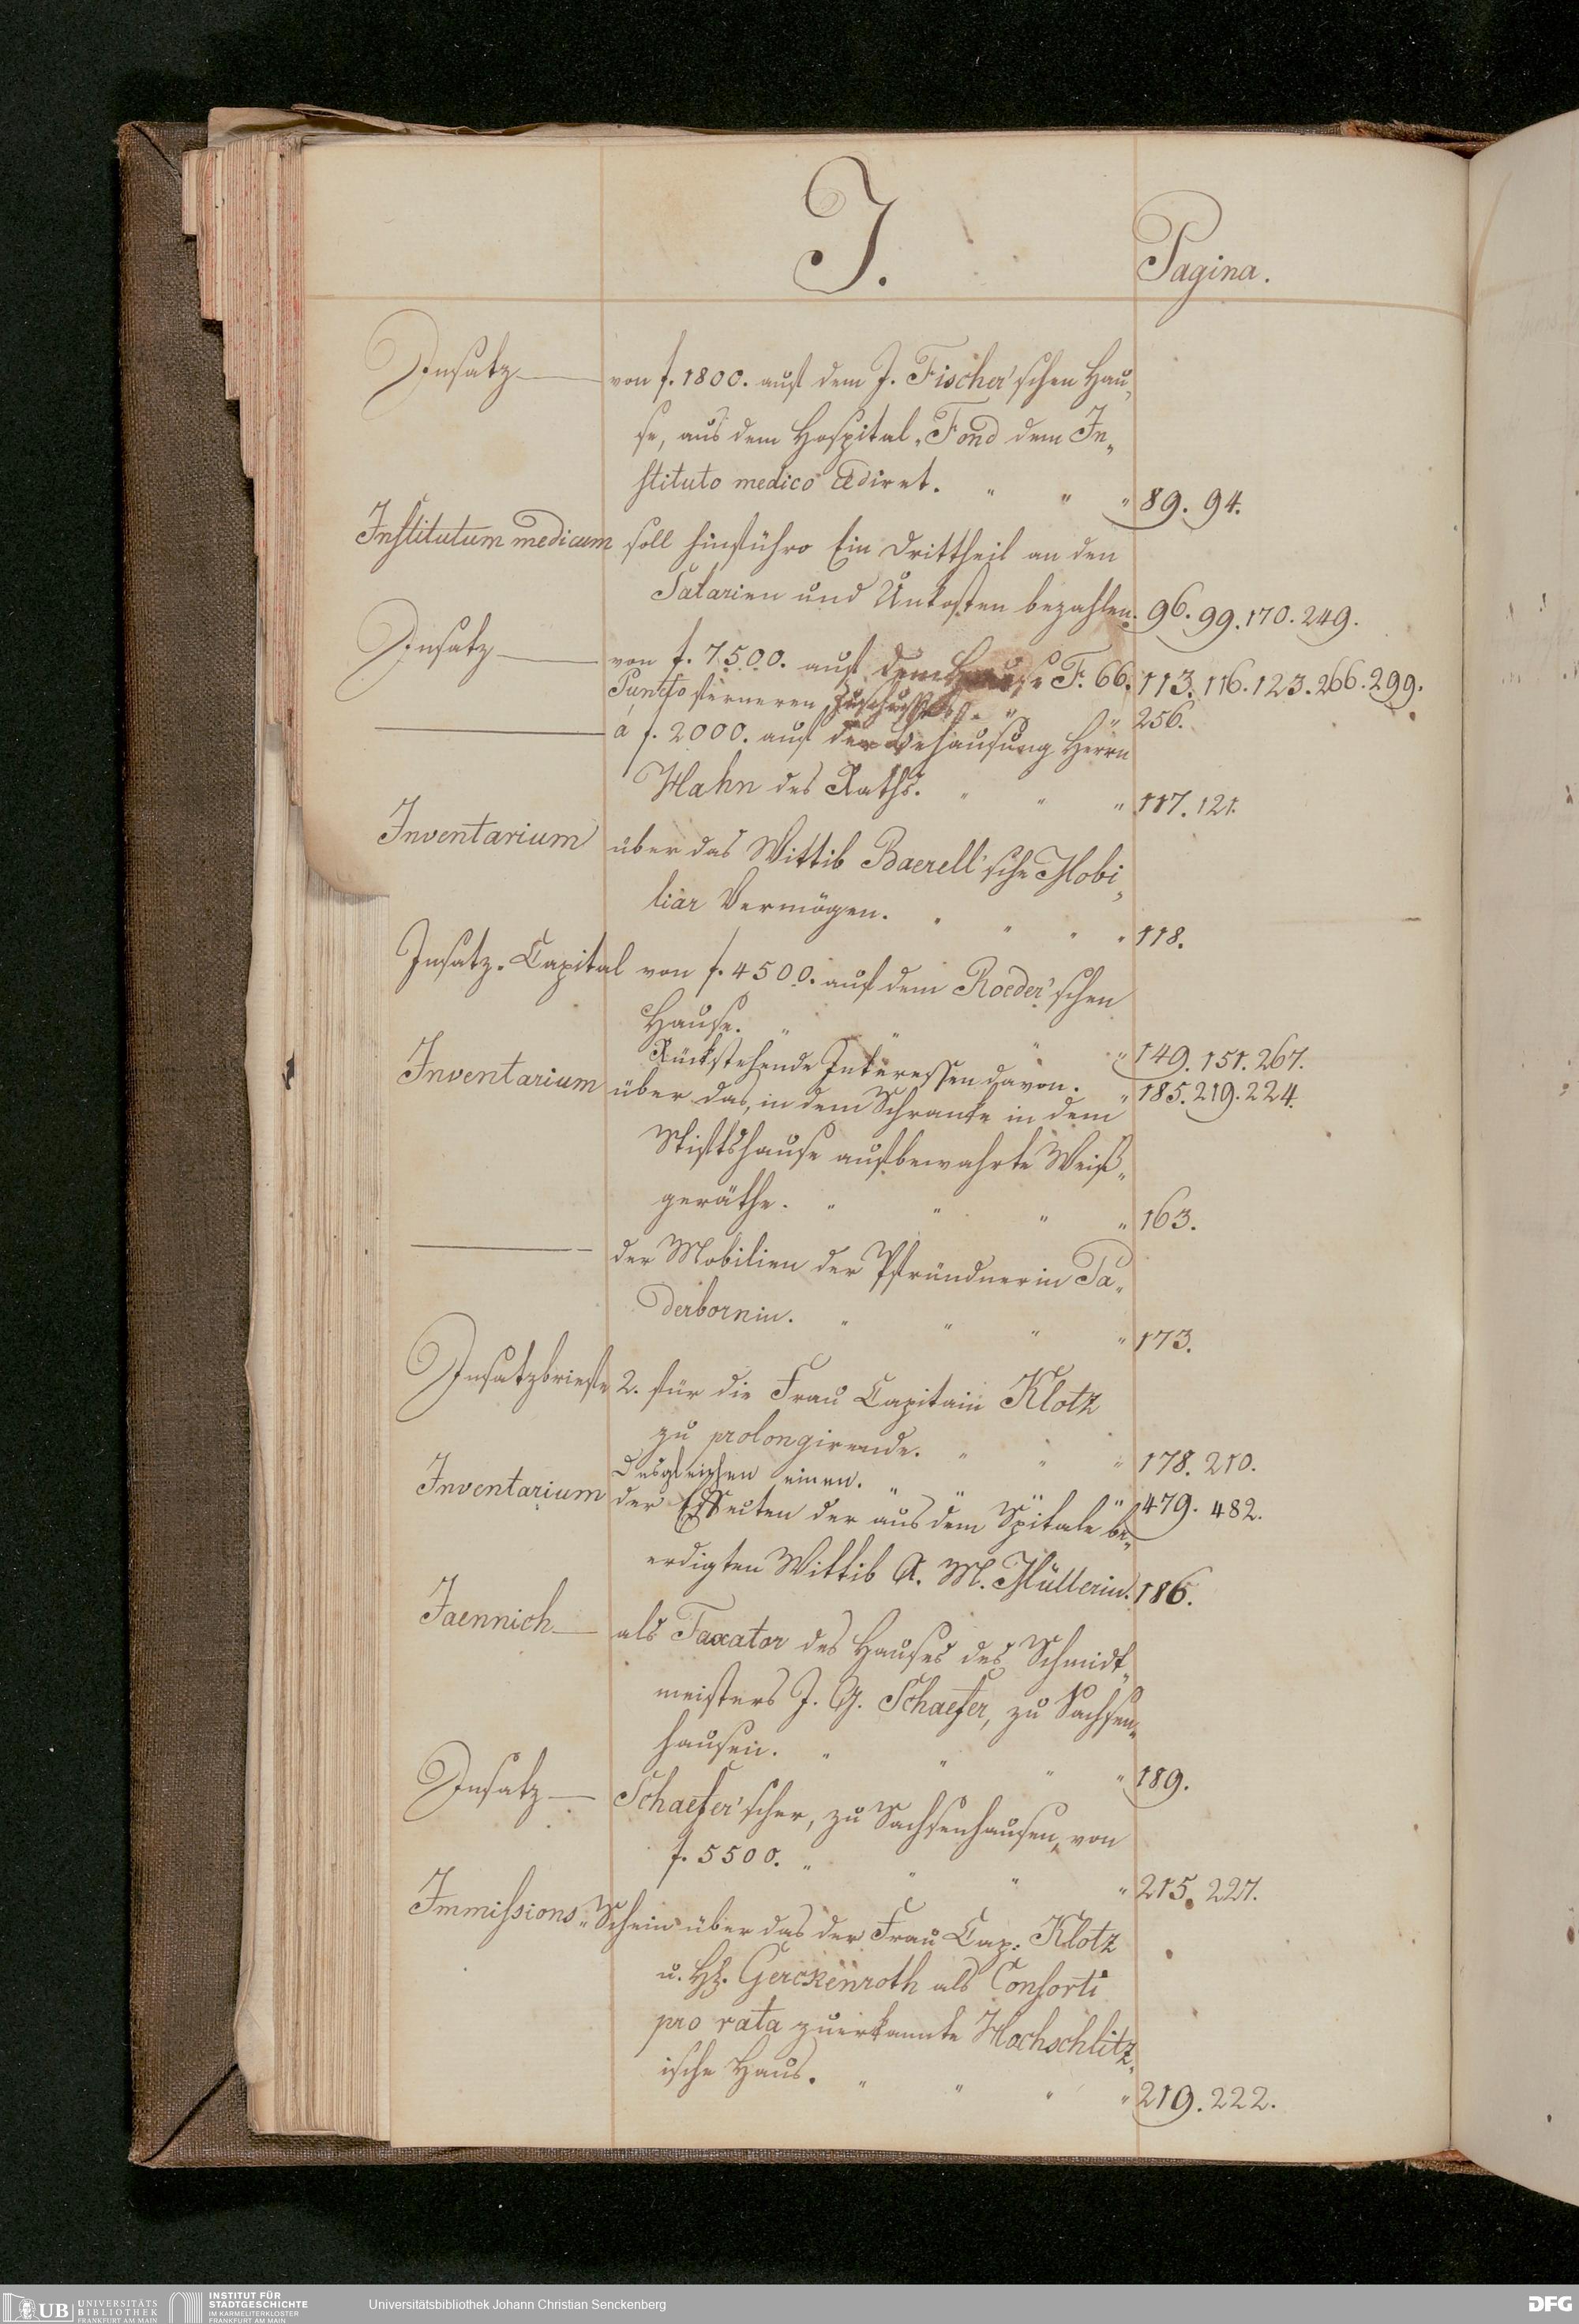 J.
Pagina.
Insatz — von f. 1800. auf dem J. Fischer'schen Hau„
se, aus dem Hospital-Fond dem In„
stituto medico cediret. " " " 89. 94.
Institutum medicum soll hinführo Ein Drittheil an den
Salarien und Unkosten bezahlen. 96. 99. 170. 249.
Insatz — von f. 7500. auf dem Hause F. 66. 113. 116. 123. 266. 299.
Puncto ferneren Zuschusses. " " 256.
— à f. 2000. auf der Behausung Herrn
Hahn des Raths. " " " 117. 121.
Inventarium über das Wittib Baerell'sche Mobi„
liar Vermögen. " " " " 118.
Insatz-Capital von f. 4500. auf dem Roeder'schen
Hause. " " " " 149. 151. 267.
Rückstehende Interessen davon. " 185. 219. 224.
Inventarium über das, in dem Schranke in dem
Stiftshause aufbewahrte Weiß„
geräthe. " " " " 163.
— der Mobilien der Pfründnerin Pa„
derbornin. " " " " 173.
Insatzbriefe 2. für die Frau Capitain Klotz
zu prolongirende. " " " 178. 210.
Desgleichen einen. " " " " 479. 482.
Inventarium der Effecten der aus dem Spitale be„
erdigten Wittib A. M. Müllerin. 186.
Jaennich — als Taxator des Hauses des Schmidt„
meisters J. G. Schaefer, zu Sachsen„
hausen. " " " " 189.
Insatz — Schaefer'scher, zu Sachsenhausen, von
f. 5500. " " " " 215. 227.
Immissions-Schein über das der Frau Cap: Klotz
u. H. Gerckenroth als Consorti
pro rata zuerkannte Hochschlitz„
ische Haus. " " " " 219. 222.
UB UNIVERSITÄTS
BIBLIOTHEK
FRANKFURT AM MAIN
INSTITUT FÜR
STADTGESCHICHTE
IM KARMELITERKLOSTER
FRANKFURT AM MAIN
Universitätsbibliothek Johann Christian Senckenberg
DFG